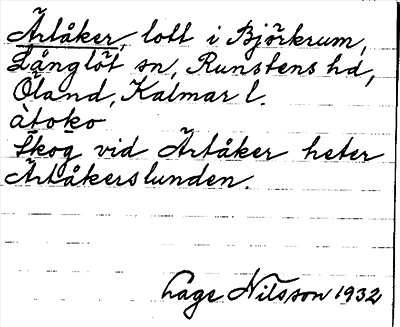 Ärtåker, lott i Björkrum,
Långlöt sn, Runstens hd,
Öland, Kalmar l.
àtoko
Skog vid Ärtåker heter
Ärtåkerslunden.
Lage Nilsson 1932